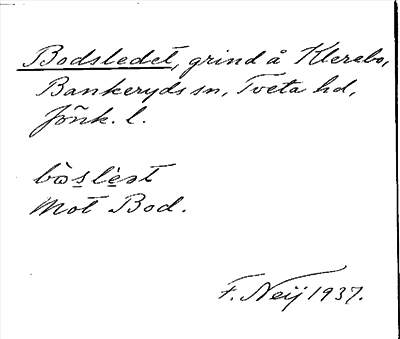 Bodsledet, grind å Klerebo,
Bankeryds sn, Tveta hd,
Jönk. l.
bωslèt
Mot Bod.
F. Neij 1937.